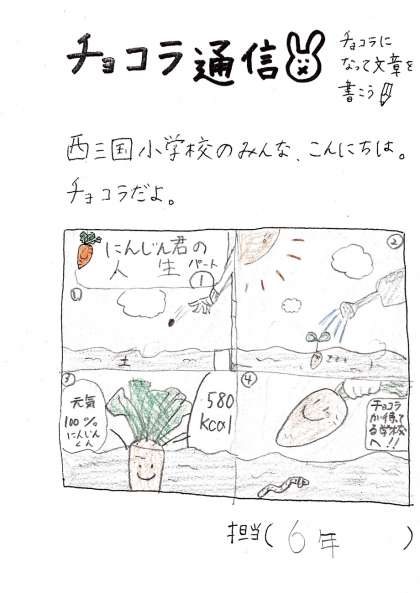 チョコラ通信
チョコラに
なって文章を
書こう
西三国小学校のみんな、こんにちは。
チョコラだよ。
にんじん君の
人生パート
①
①
土
②
③
元気
100%
にんじん
くん
580
kcal
④
チョコラ
が待って
る学校
へ!!
担当(6年)